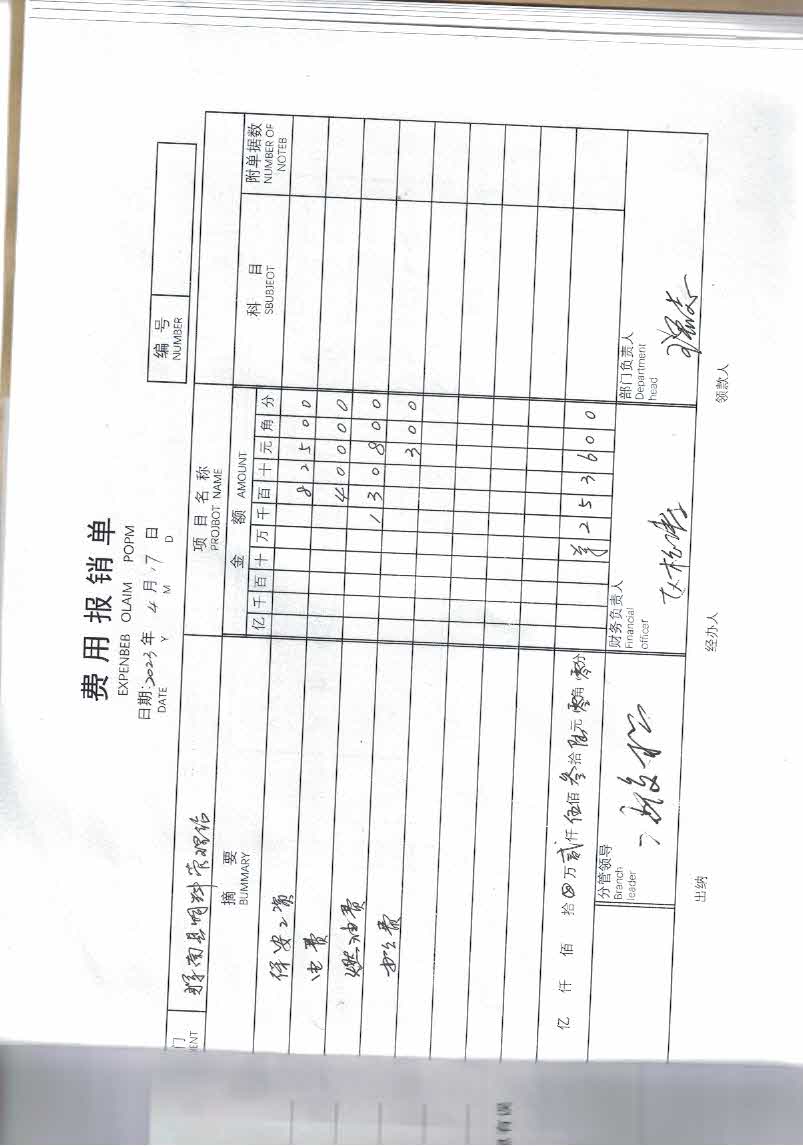 费用报销单
EXPENBEB OLAIM POPM
日期: 2023年 4月 7日
DATE Y M D
编号
NUMBER
门
MENT
项目名称
PROJBOT NAME
摘要
BUMMARY
金额 AMOUNT
亿 千 百 十 万 千 百 十 元 角 分
科目
SBUBJEOT
附单据数
NUMBER OF
NOTEB
保安工资 8 2 5 0 0
电费 4 0 0 0 0
燃油费 1 3 0 8 0 0
办公费 3 0 0
亿 仟 佰 拾 万 贰仟 伍佰 叁拾 陆元 零角 零分 ¥ 2 5 3 6 0 0
分管领导
Branch
leader
财务负责人
Financial
officer
部门负责人
Department
head
出纳 经办人 领款人
有误